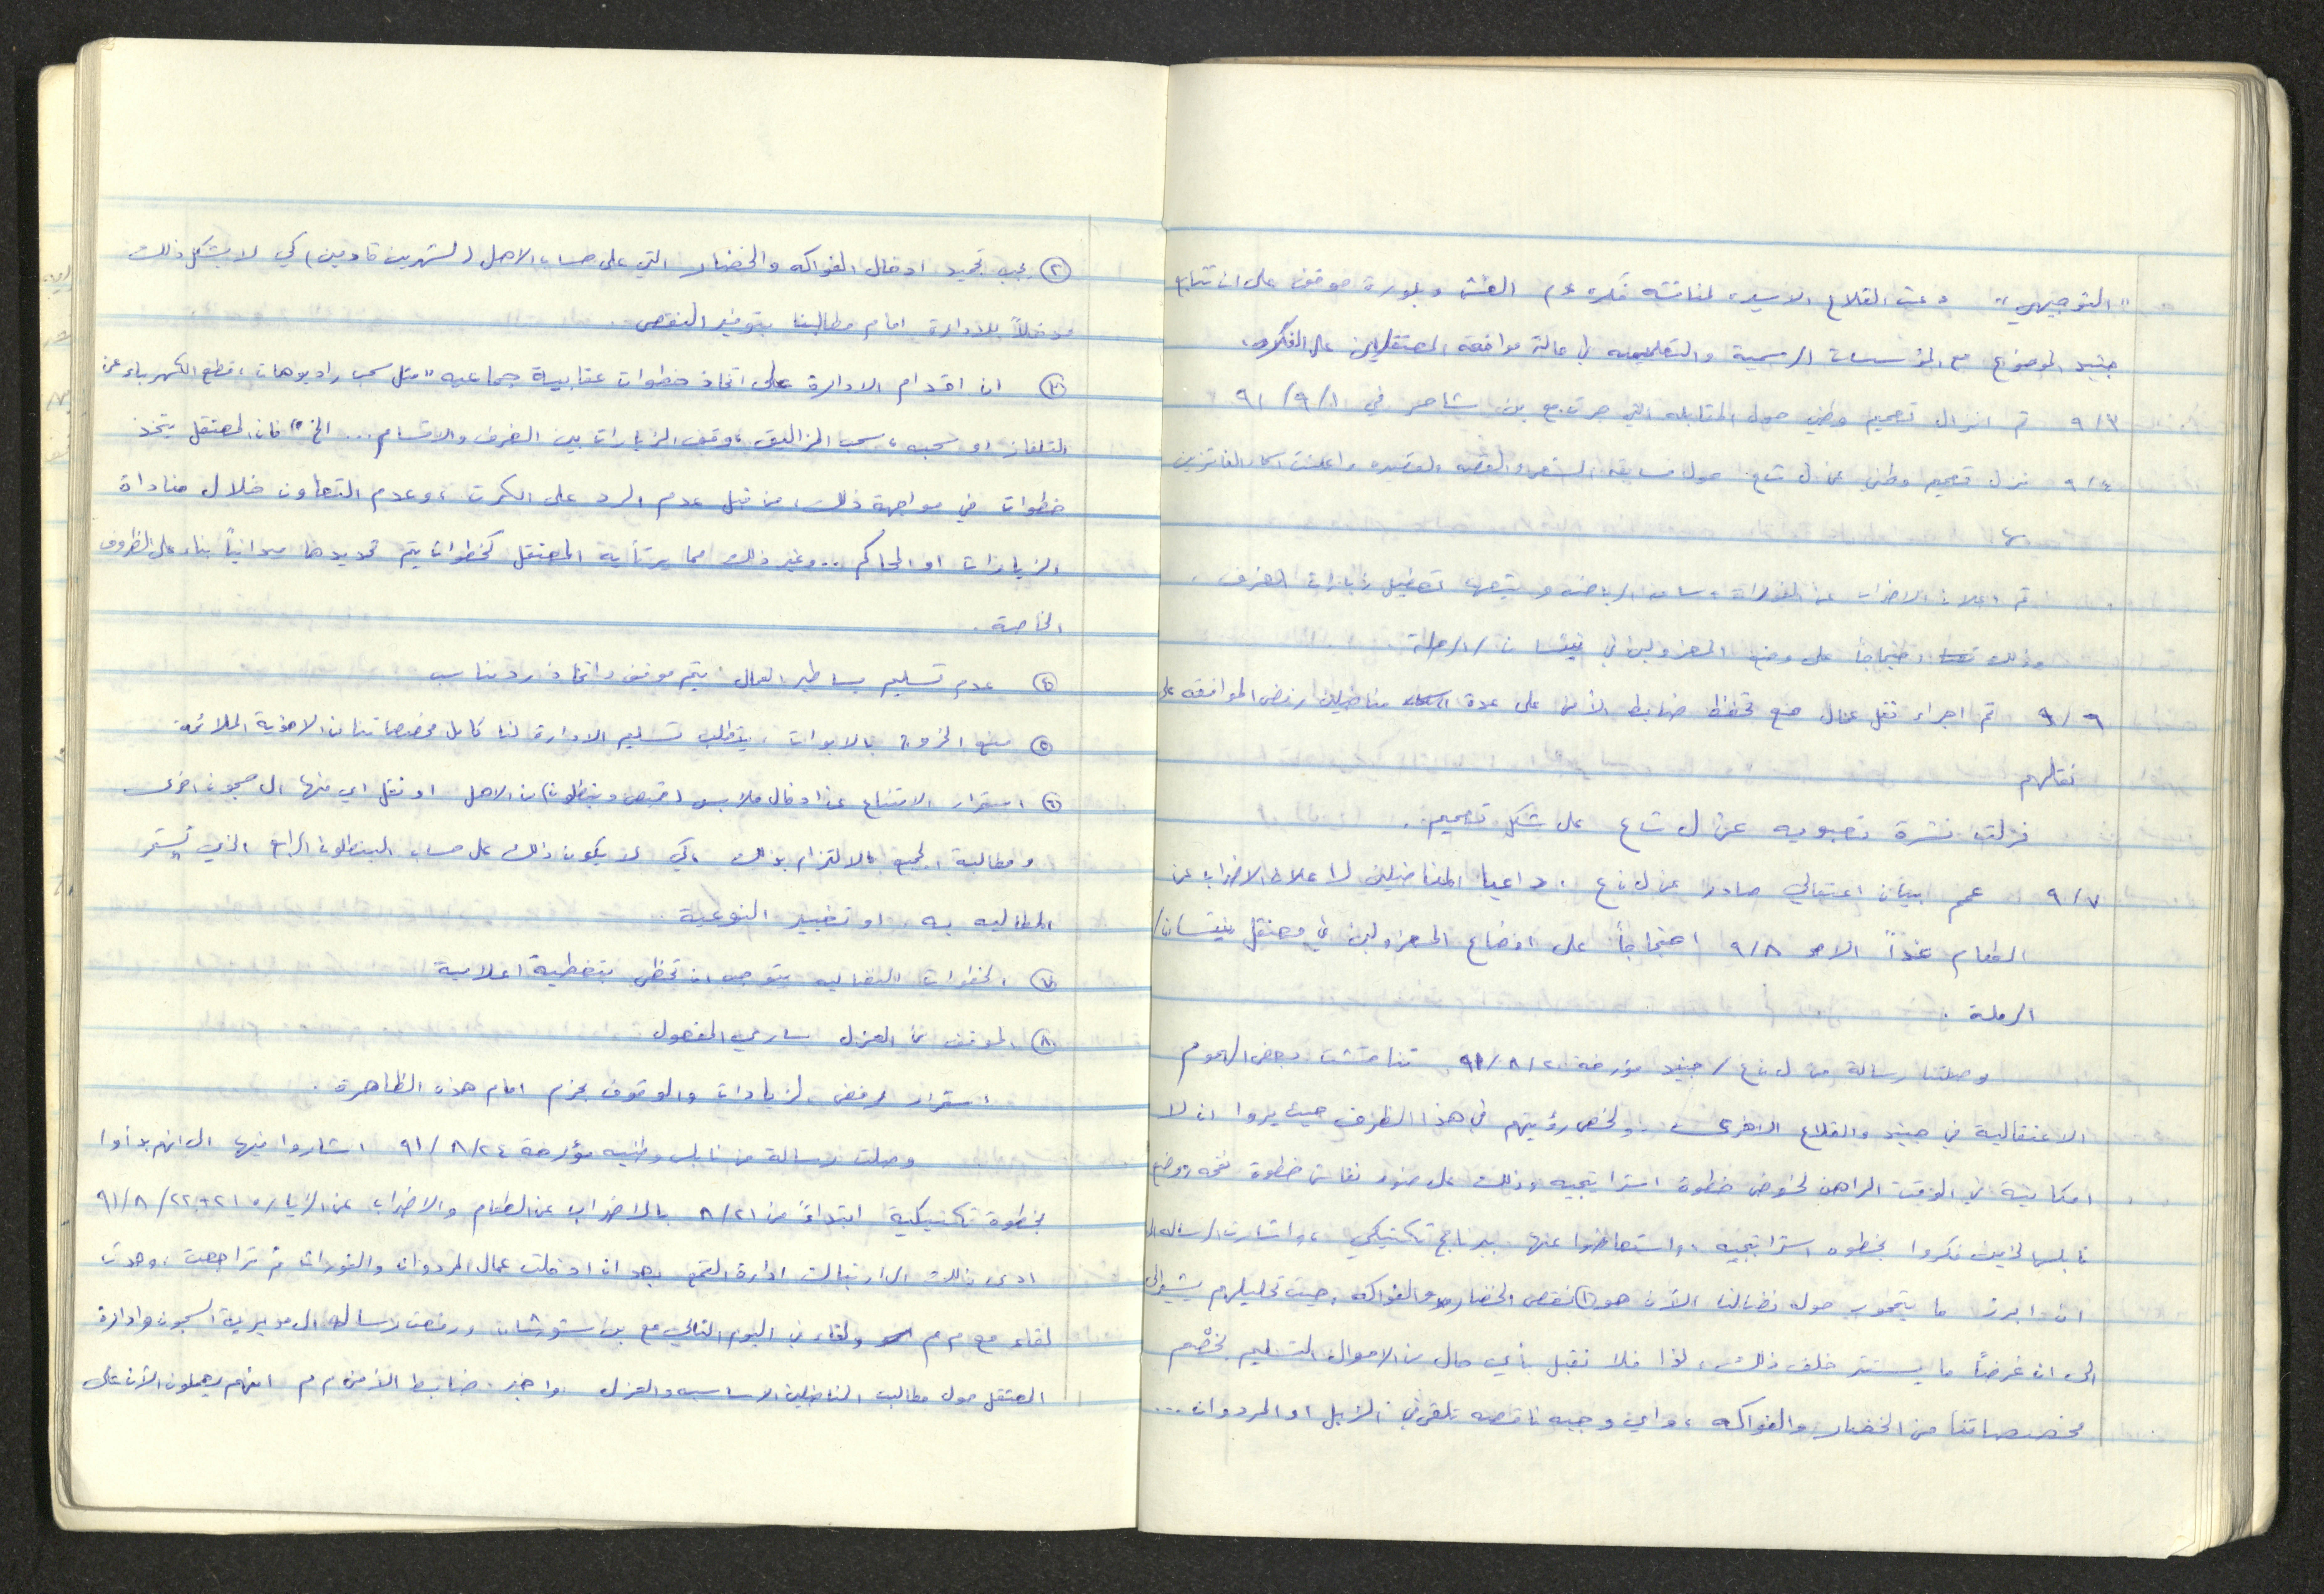 "التوجيهي" دعت القلاع الاسيرة لمناقشة فكرة عدم الغش وبلورة موقف على ان تتابع
جنيد الموضوع مع المؤسسات الرسمية والتعليمية في حالة موافقة المعتقلين على الفكرة.
٩/٣ تم انزال تعميم وطني حول المقابلة التي جرت مع بن شاحر في ٩١/٩/١
٩/٤ نزل تعميم وطني عن ل ن ع حول مسابقة الشعر والقصة القصيرة واعلنت اسماء الفائزين
بها
تم اعلان الاضراب عن الفورة ساعة الرياضة و يتبعها تعطيل زيارات الغرف.
وذلك احتجاجاً على وضع المعزولين في نيتسان / الرملة
٩/٦ تم اجراء نقل عمال مع تحفظ ضابط الأمن على عدة مناضلين رفض الموافقة على
نقلهم
نزلت نشرة تعبوية عن ل ن ع على شكل تعميم.
٩/٧ عمم بيان اعتقالي صادر عن ل ن ع. داعيا المناضلين لاعلان الاضراب عن
الطعام غداً الاحد ٩/٨ احتجاجاً على اوضاع المعزولين في معتقل نيتسان/
الرملة.
وصلتنا رسالة من ل ن ع / جنيد مؤرخة ٩١/٨/٢٠ تناقشت بعض الهموم
الاعتقالية في جنيد والقلاع الاخرى. ولخص رؤيتهم في هذا الظرف حيث يروا ان لا
امكانية في الوقت الراهن لخوض خطوة استراتيجية وذلك على ضوء نقاش خطوة نفحة ووضع
نابلس الذين فكروا بخطوة استراتيجية، واستعاضوا عنها ببرنامج تكتيكي، واشارت الرسالة الى
ان ابرز ما يتمحور حوله نضالنا الآن هو ① نقص الخضار والفواكه، حيث تحليلهم يشير الى
الى ان غرضاً ما يستتر خلف ذلك، لذا فلا نقبل بأي حال من الاحوال التسليم بخصم
مخصصاتنا من الخضار والفواكه، واي وجبه ناقصه تلقى في الزبل او المردوان ...
② يجب تجميد ادخال الفواكه والخضار التي على حساب الاهل (لشهرين قادمين) كي لا يشكل ذلك
مدخلاً للادارة امام مطالبنا بتوفير النقص.
③ ان اقدام الادارة على اتخاذ خطوات عقابية جماعيه "مثل سحب راديوهات، قطع الكهرباء عن
التلفاز او سحبه، سحب المزاليق، وقف الزيارات بين الغرف والاقسام... الخ" فان المعتقل يتخذ
خطوات في مواجهة ذلك، من قبل عدم الرد على الكرت، وعدم التعاون خلال مناداة
الزيارات او المحاكم .. وغير ذلك مما يرتأيه المعتقل كخطوات يتم تحديدها ميدانياً بناء على الظروف
الخاصة.
④ عدم تسليم بساطير العمال يتم موقف واتخاذ رد مناسب
⑤ منع الخروج بالابوات، يتطلب تسليم الادارة لنا كامل مخصصاتنا من الاحذية الملائمة
⑥ استمرار الامتناع عن ادخال ملابس (قميص وبنطلون) من الاهل او نقل اي منها الى سجون اخرى.
ومطالبة الجميع بالالتزام بذلك، كي لا يكون ذلك على حساب البنطلون الرابع الذي تستمر
المطالبه به، او تغيير النوعية.
⑦ الخطوات النضاليه يتوجب ان تحظى بتغطية اعلامية
⑧ الموقف من العزل ساري المفعول
استمرار لرفض الزيادات والوقوف بحزم امام هذه الظاهرة.
وصلت رسالة من نابلس وطنيه مؤرخة ٩١/٨/٢٤ اشاروا فيها الى انهم بدأوا
بخطوة تكتيكية ابتداءً من ٨/٢١ بالاضراب عن الطعام والاضراب عن الزياره ٢١+٩١/٨/٢٢
ادى ذلك الى ارتباك ادارة القمع بعد ان ادخلت عمال المردوان والفورات ثم تراجعت، وحدث
لقاء مع م م ولقاء في اليوم التالي مع بن ستروشان ورفعت رسالة الى مديرية السجون وادارة
المعتقل حول مطالب المناضلين الاساسية والعزل واخبر ضابط الأمن م م انهم يعملون الآن على